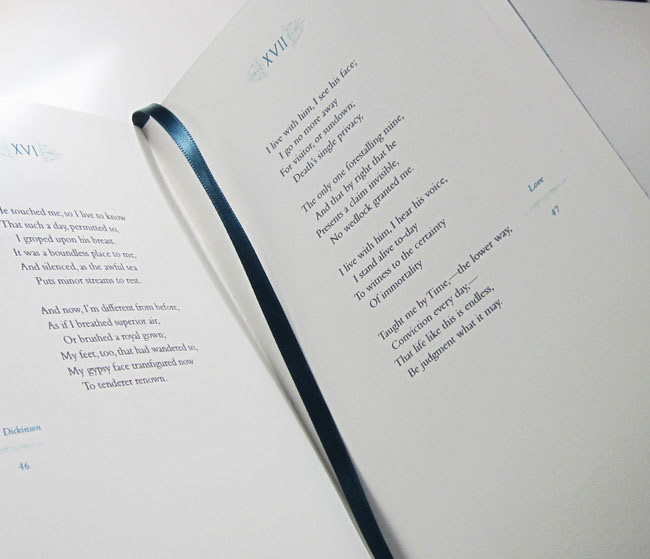 XVI
He touched me, so I live to know
That such a day, permitted so,
I groped upon his breast.
It was a boundless place to me,
And silenced, as the awful sea
Puts minor streams to rest.
And now, I'm different from before,
As if I breathed superior air,
Or brushed a royal gown;
My feet, too, that had wandered so,
My gypsy face transfigured now
To tenderer renown.
Dickinson
46
XVII
I live with him, I see his face;
I go no more away
For visitor, or sundown;
Death's single privacy,
The only one forestalling mine,
And that by right that he
Presents a claim invisible,
No wedlock granted me.
I live with him, I hear his voice,
I stand alive to-day
To witness to the certainty
Of immortality
Taught me by Time,—the lower way,
Conviction every day,—
That life like this is endless,
Be judgment what it may.
Love
47